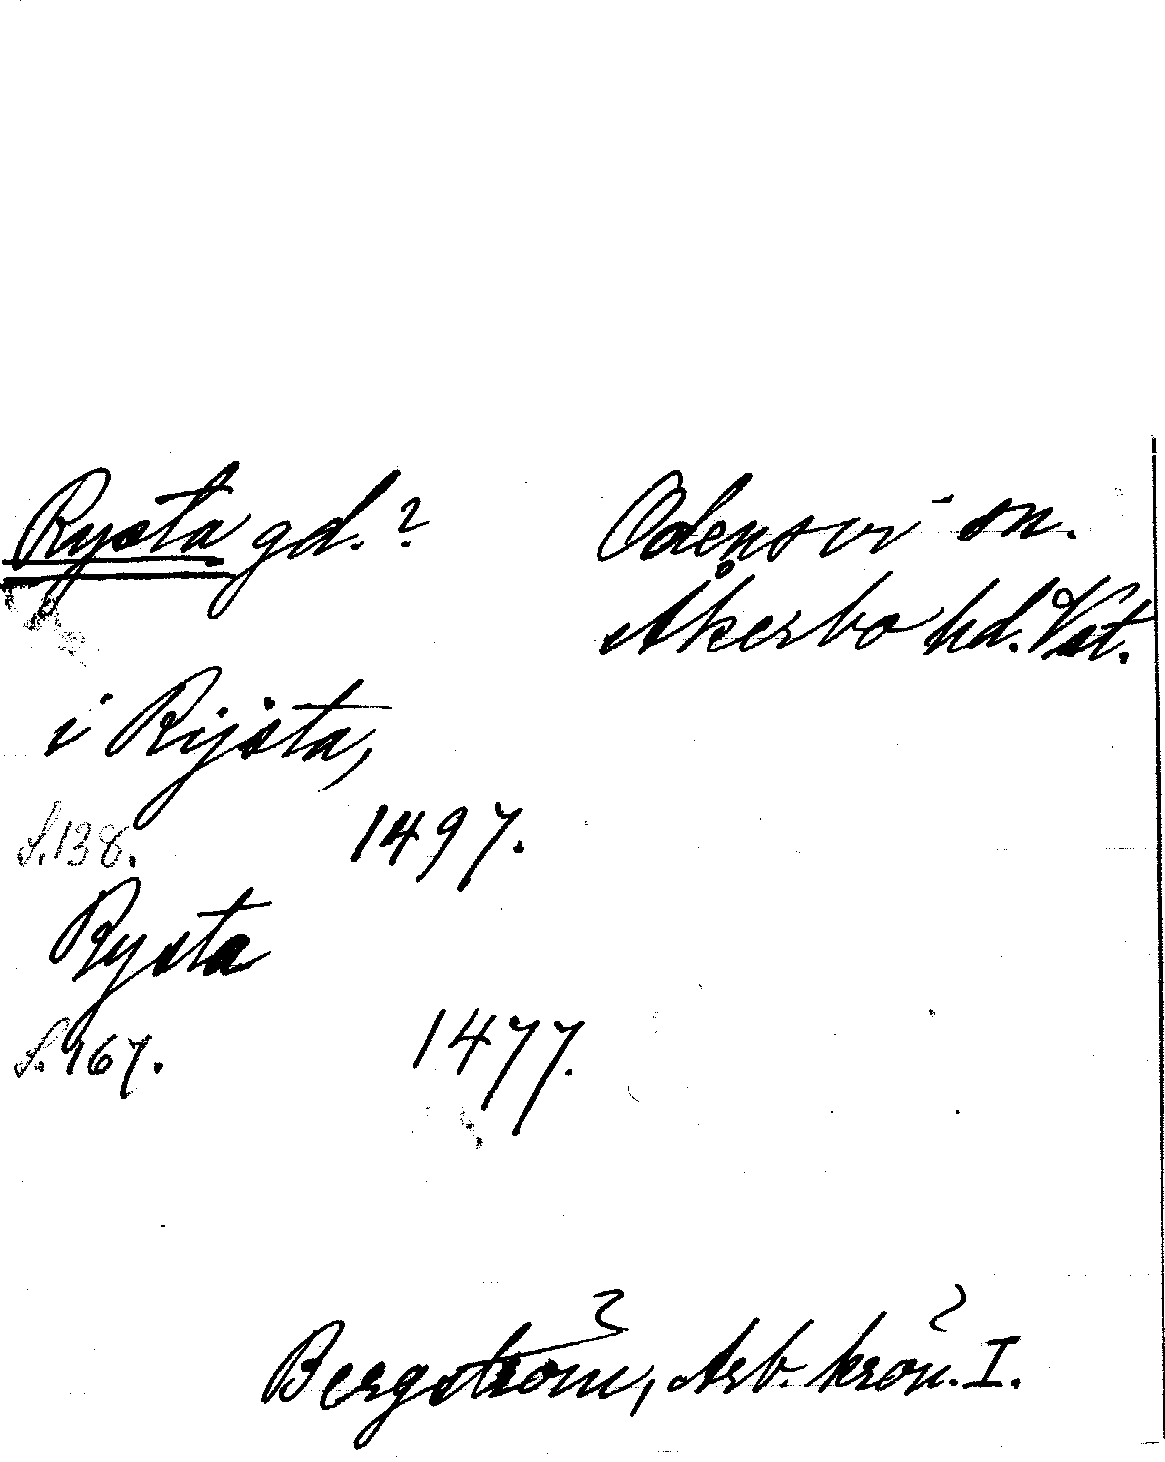 Rysta gd.? Odensvi sn.
Åkerbo hd. Vst.
i Rijsta,
S. 138. 1497.
Rysta
S. 167. 1477.
Bergström, Arb. krön. I.